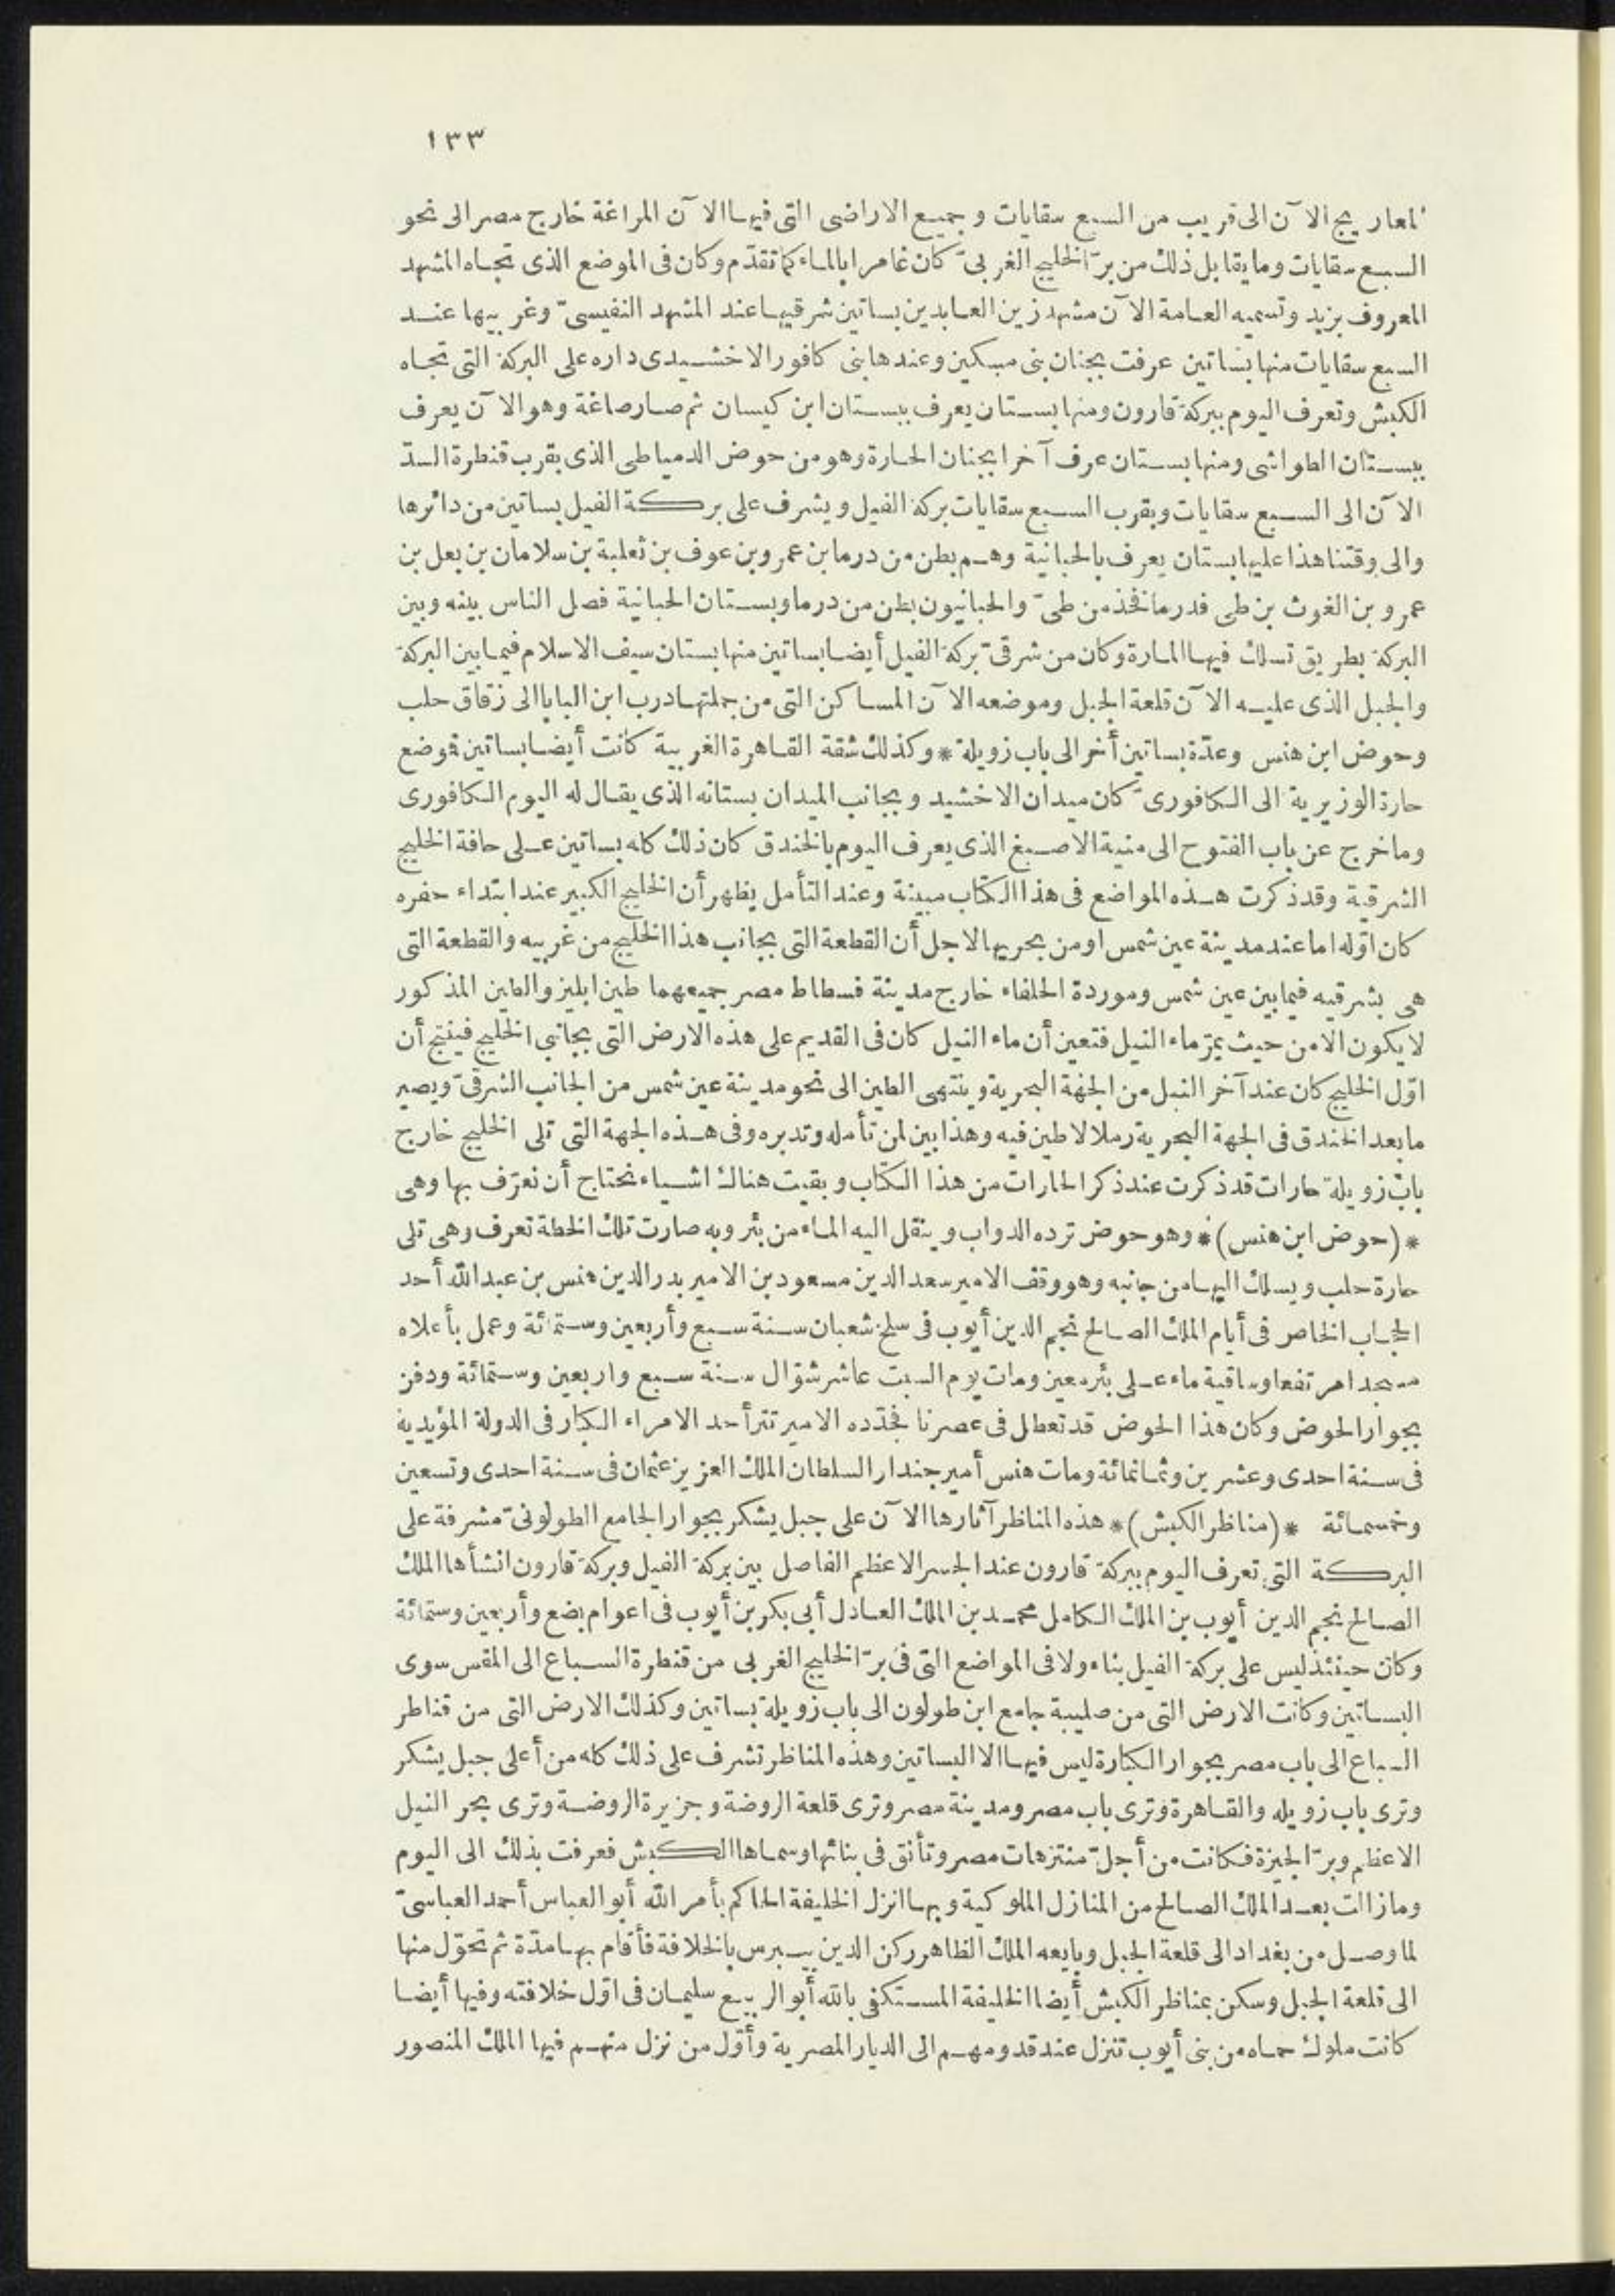 ١٣٣
المعاريج الآن الى قريب من السبع سقايات وجميع الاراضى التى فيها الآن المراغة خارج مصر الى نحو
السبع سقايات وما يقابل ذلك من برّ الخليج الغربىّ كان غامرا بالماء كما تقدّم وكان فى الموضع الذى تجاه المشهد
المعروف بزيد وتسميه العامة الآن مشهد زين العابدين بساتين شرقيها عند المشهد النفيسىّ وغربيها عند
السبع سقايات منها بساتين عرفت بجنان بنى مسكين وعندها بنى كافور الاخشيدى داره على البركة التى تجاه
الكبش وتعرف اليوم ببركة قارون ومنها بستان يعرف ببستان ابن كيسان ثم صار صاغة وهو الآن يعرف
ببستان الطواشى ومنها بستان عرف آخرا بجنان الحارة وهو من حوض الدمياطى الذى بقرب قنطرة السدّ
الآن الى السبع سقايات وبقرب السبع سقايات بركة الفيل ويشرف على بركة الفيل بساتين من دائرها
والى وقتنا هذا عليها بستان يعرف بالحبانية وهم بطن من درما بن عمرو بن عوف بن ثعلبة بن سلامان بن بعل بن
عمرو بن الغوث بن طى فدرما فخذ من طىّ والحبانيون بطن من درما وبستان الحبانية فصل الناس بينه وبين
البركة بطريق تسلك فيها المارة وكان من شرقىّ بركة الفيل أيضا بساتين منها بستان سيف الاسلام فيما بين البركة
والجبل الذى عليه الآن قلعة الجبل وموضعه الآن المساكن التى من جملتها درب ابن البابا الى زقاق حلب
وحوض ابن هنس وعدّة بساتين أخر الى باب زويلة * وكذلك شقة القاهرة الغربية كانت أيضا بساتين فوضع
حارة الوزيرية الى الكافورىّ كان ميدان الاخشيد وبجانب الميدان بستانه الذى يقال له اليوم الكافورى
وما خرج عن باب الفتوح الى منية الاصبغ الذى يعرف اليوم بالخندق كان ذلك كله بساتين على حافة الخليج
الشرقية وقد ذكرت هذه المواضع فى هذا الكتاب مبينة وعند التأمل يظهر أن الخليج الكبير عند ابتداء حفره
كان اوّله اما عند مدينة عين شمس او من بحريها لاجل أن القطعة التى بجانب هذا الخليج من غربيه والقطعة التى
هى بشرقيه فيما بين عين شمس وموردة الحلفاء خارج مدينة فسطاط مصر جميعهما طين ابليز والطين المذكور
لا يكون الا من حيث يمرّ ماء النيل فتعين أن ماء النيل كان فى القديم على هذه الارض التى بجانبى الخليج فينتج أن
اوّل الخليج كان عند آخر النيل من الجهة البحرية وينتهى الطين الى نحو مدينة عين شمس من الجانب الشرقىّ ويصير
ما بعد الخندق فى الجهة البحرية رملا لا طين فيه وهذا بين لمن تأمله وتدبره وفى هذه الجهة التى تلى الخليج خارج
باب زويلة حارات قد ذكرت عند ذكر الحارات من هذا الكتاب وبقيت هناك اشياء نحتاج أن نعرّف بها وهى
* (حوض ابن هنس) * وهو حوض ترده الدواب وينقل اليه الماء من بئر وبه صارت تلك الخطة تعرف وهى تلى
حارة حلب ويسلك اليها من جانبه وهو وقف الامير سعد الدين مسعود بن الامير بدر الدين هنس بن عبد الله أحد
الحجاب الخاص فى أيام الملك الصالح نجم الدين أيوب فى سلخ شعبان سنة سبع وأربعين وستمائة وعمل بأعلاه
مسجدا مرتفعا وساقية ماء على بئر معين ومات يوم السبت عاشر شوّال سنة سبع واربعين وستمائة ودفن
بجوار الحوض وكان هذا الحوض قد تعطل فى عصرنا فجدّده الامير تتر أحد الامراء الكبار فى الدولة المؤيدية
فى سنة احدى وعشرين وثمانمائة ومات هنس أمير جندار السلطان الملك العزيز عثمان فى سنة احدى وتسعين
وخمسمائة * (مناظر الكبش) * هذه المناظر آثارها الآن على جبل يشكر بجوار الجامع الطولونىّ مشرفة على
البركة التى تعرف اليوم ببركة قارون عند الجسر الاعظم الفاصل بين بركة الفيل وبركة قارون انشأها الملك
الصالح نجم الدين أيوب بن الملك الكامل محمد بن الملك العادل أبى بكر بن أيوب فى اعوام بضع وأربعين وستمائة
وكان حينئذ ليس على بركة الفيل بناء ولا فى المواضع التى فى برّ الخليج الغربى من قنطرة السباع الى المقس سوى
البساتين وكانت الارض التى من صليبة جامع ابن طولون الى باب زويلة بساتين وكذلك الارض التى من قناطر
السباع الى باب مصر بجوار الكبارة ليس فيها الا البساتين وهذه المناظر تشرف على ذلك كله من أعلى جبل يشكر
وترى باب زويله والقاهرة وترى باب مصر ومدينة مصر وترى قلعة الروضة وجزيرة الروضة وترى بحر النيل
الاعظم وبرّ الجيزة فكانت من أجلّ منتزهات مصر وتأنق فى بنائها وسماها الكبش فعرفت بذلك الى اليوم
وما زالت بعد الملك الصالح من المنازل الملوكية وبها انزل الخليفة الحاكم بأمر الله أبو العباس أحمد العباسىّ
لما وصل من بغداد الى قلعة الجبل وبايعه الملك الظاهر ركن الدين بيبرس بالخلافة فأقام بها مدّة ثم تحوّل منها
الى قلعة الجبل وسكن بمناظر الكبش أيضا الخليفة المستكفى بالله أبو الربيع سليمان فى اوّل خلافته وفيها أيضا
كانت ملوك حماه من بنى أيوب تنزل عند قدومهم الى الديار المصرية وأوّل من نزل منهم فيها الملك المنصور